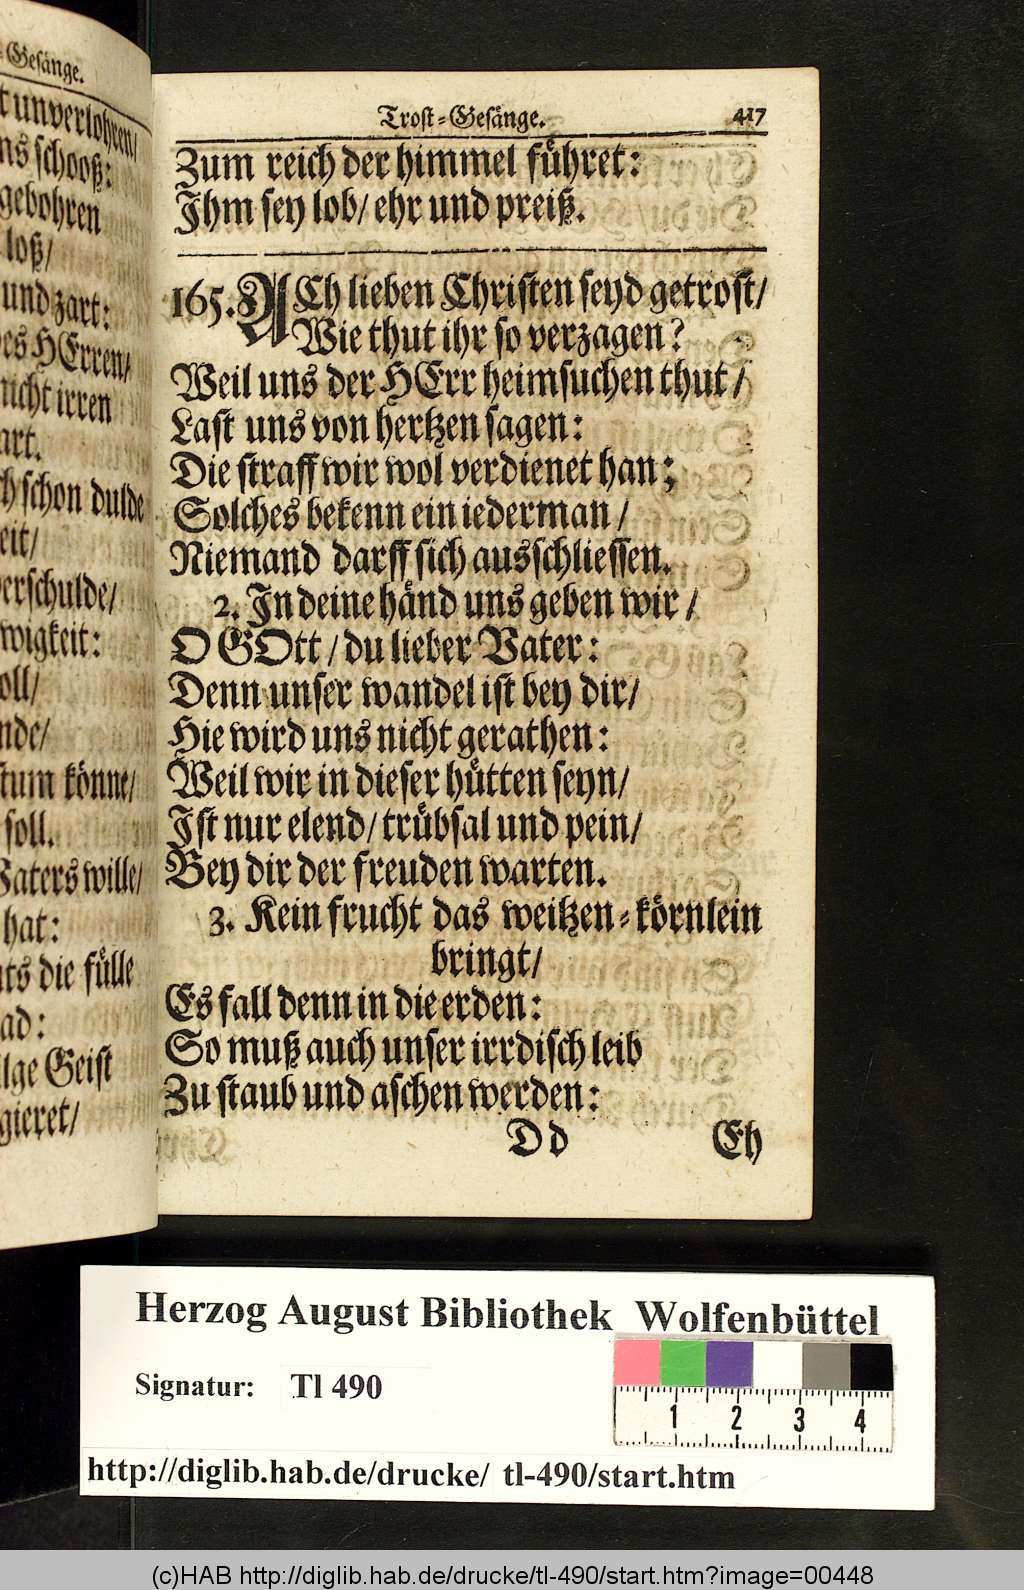 -Gesänge.
unverlohren/
schooß:
gebohren
loß/
und zart:
HErren/
nicht irren
art.
schon dulde
eit/
verschulde/
wigkeit:
soll/
nde/
stum könne/
soll.
Vaters wille/
hat:
nts die fülle
ad:
lge Geist
gieret/
Trost-Gesänge. 417
Zum reich der himmel führet:
Ihm sey lob/ ehr und preiß.
165. ACh lieben Christen seyd getrost/
Wie thut ihr so verzagen?
Weil uns der HErr heimsuchen thut/
Last uns von hertzen sagen:
Die straff wir wol verdienet han:
Solches bekenn ein iederman/
Niemand darff sich ausschliessen.
2. In deine händ uns geben wir/
O GOtt/ du lieber Vater:
Denn unser wandel ist bey dir/
Hie wird uns nicht gerathen:
Weil wir in dieser hütten seyn/
Ist nur elend/ trübsal und pein/
Bey dir der freuden warten.
3. Kein frucht das weitzen-körnlein
bringt/
Es fall denn in die erden:
So muß auch unser irrdisch leib
Zu staub und aschen werden:
Dd Eh
Herzog August Bibliothek Wolfenbüttel
Signatur: Tl 490
1 2 3 4
http://diglib.hab.de/drucke/ tl-490/start.htm
(c)HAB http://diglib.hab.de/drucke/tl-490/start.htm?image=00448